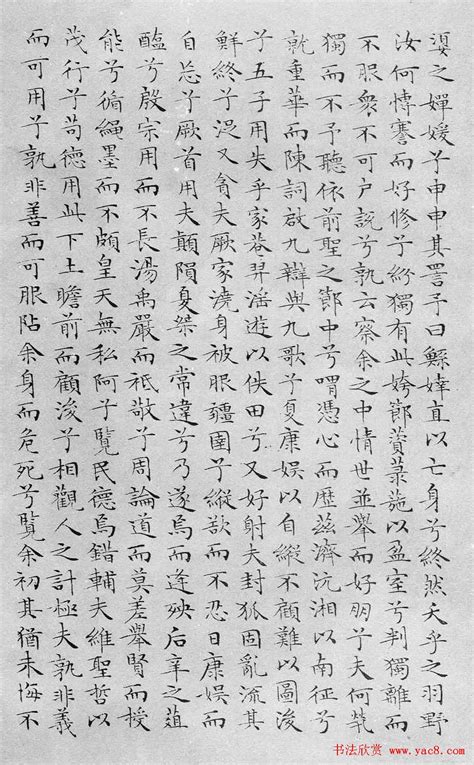 嬃之嬋媛兮申申其詈予曰鯀婞直以亡身兮終然夭乎之羽野
汝何博謇而好修兮紛獨有此姱節薋菉葹以盈室兮判獨離而
不服衆不可户說兮孰云察余之中情世並舉而好朋兮夫何煢
獨而不予聽依前聖之節中兮喟憑心而歷茲濟沅湘以南征兮
就重華而陳詞啟九辯與九歌兮夏康娛以自縱不顧難以圖後
兮五子用失乎家巷羿淫遊以佚田兮又好射夫封狐固亂流其
鮮終兮浞又貪夫厥家澆身被服彊圉兮縱欲而不忍日康娛而
自忘兮厥首用夫顛隕夏桀之常違兮乃遂焉而逢殃后辛之菹
醢兮殷宗用而不長湯禹嚴而祗敬兮周論道而莫差舉賢而授
能兮循繩墨而不頗皇天無私阿兮覽民德焉錯輔夫維聖哲以
茂行兮苟德用此下土瞻前而顧後兮相觀人之計極夫孰非義
而可用兮孰非善而可服阽余身而危死兮覽余初其猶未悔不
书法欣赏
www.yac8.com